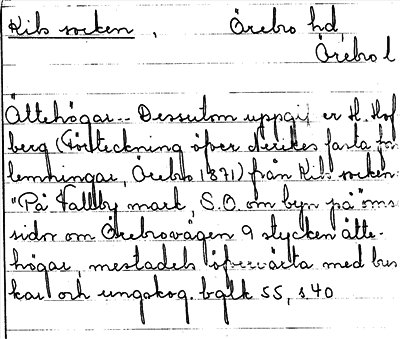 Kils socken, Örebro hd,
Örebro l
Ättehögar.-- Dessutom uppgif er H. Hof
berg (Förteckning öfver Nerikes fasta for
lemningar, Örebro 1871) från Kils socken:
"På Vallby mark, S.O. om byn på ömse
sidor om Örebrovägen 9 stycken ätte-
högar, mestadels öfvervärta med bus
kar och ungskog. bglk 55, s. 40